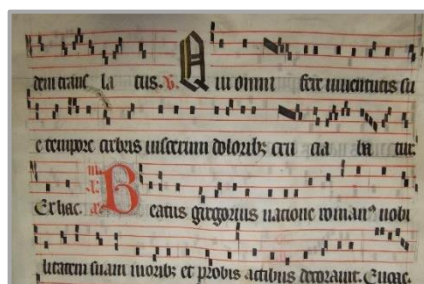 dem trans la tus. v. Qui omni fere iuuentutis su
e tempore crebris uiscerum doloribz cru cia ba tur.
Ex hac. B eatus gregorius natione roman9 nobi
litatem suam moribz et probis actibus decorauit. Eugae.